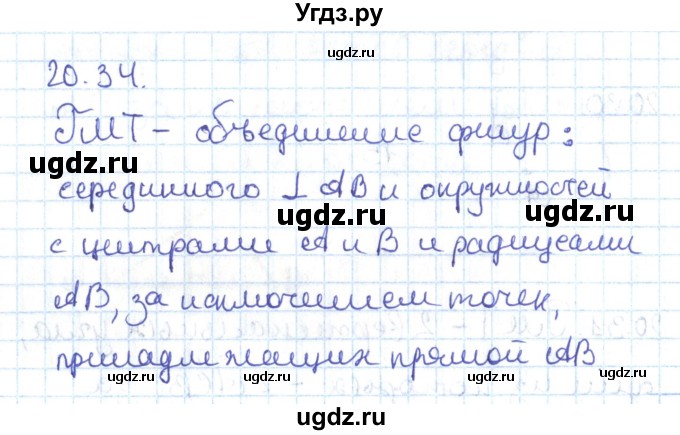 Угдз.ру
ugdz.ru ugdz.ru
20.34.
ugdz.ru
ГМТ - объединение фигур:
ugdz.ru ugdz.ru
серединного ⊥ AB и окружностей
ugdz.ru ugdz.ru
с центрами A и B и радиусами
ugdz.ru
AB, за исключением точек,
ugdz.ru ugdz.ru
принадлежащих прямой AB
ugdz.ru ugdz.ru
ugdz.ru